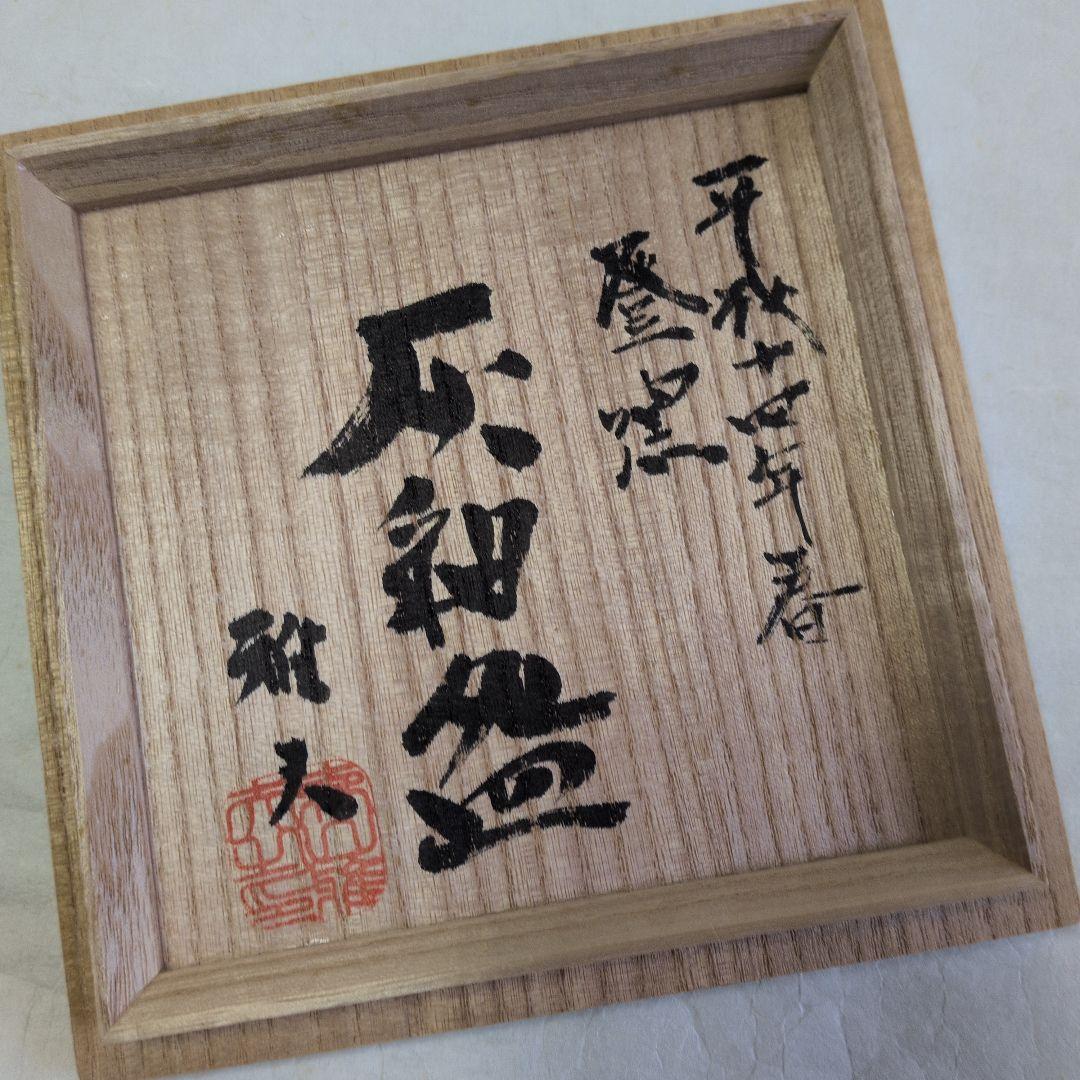 平成十四年春
登窯
灰釉盌
雅夫